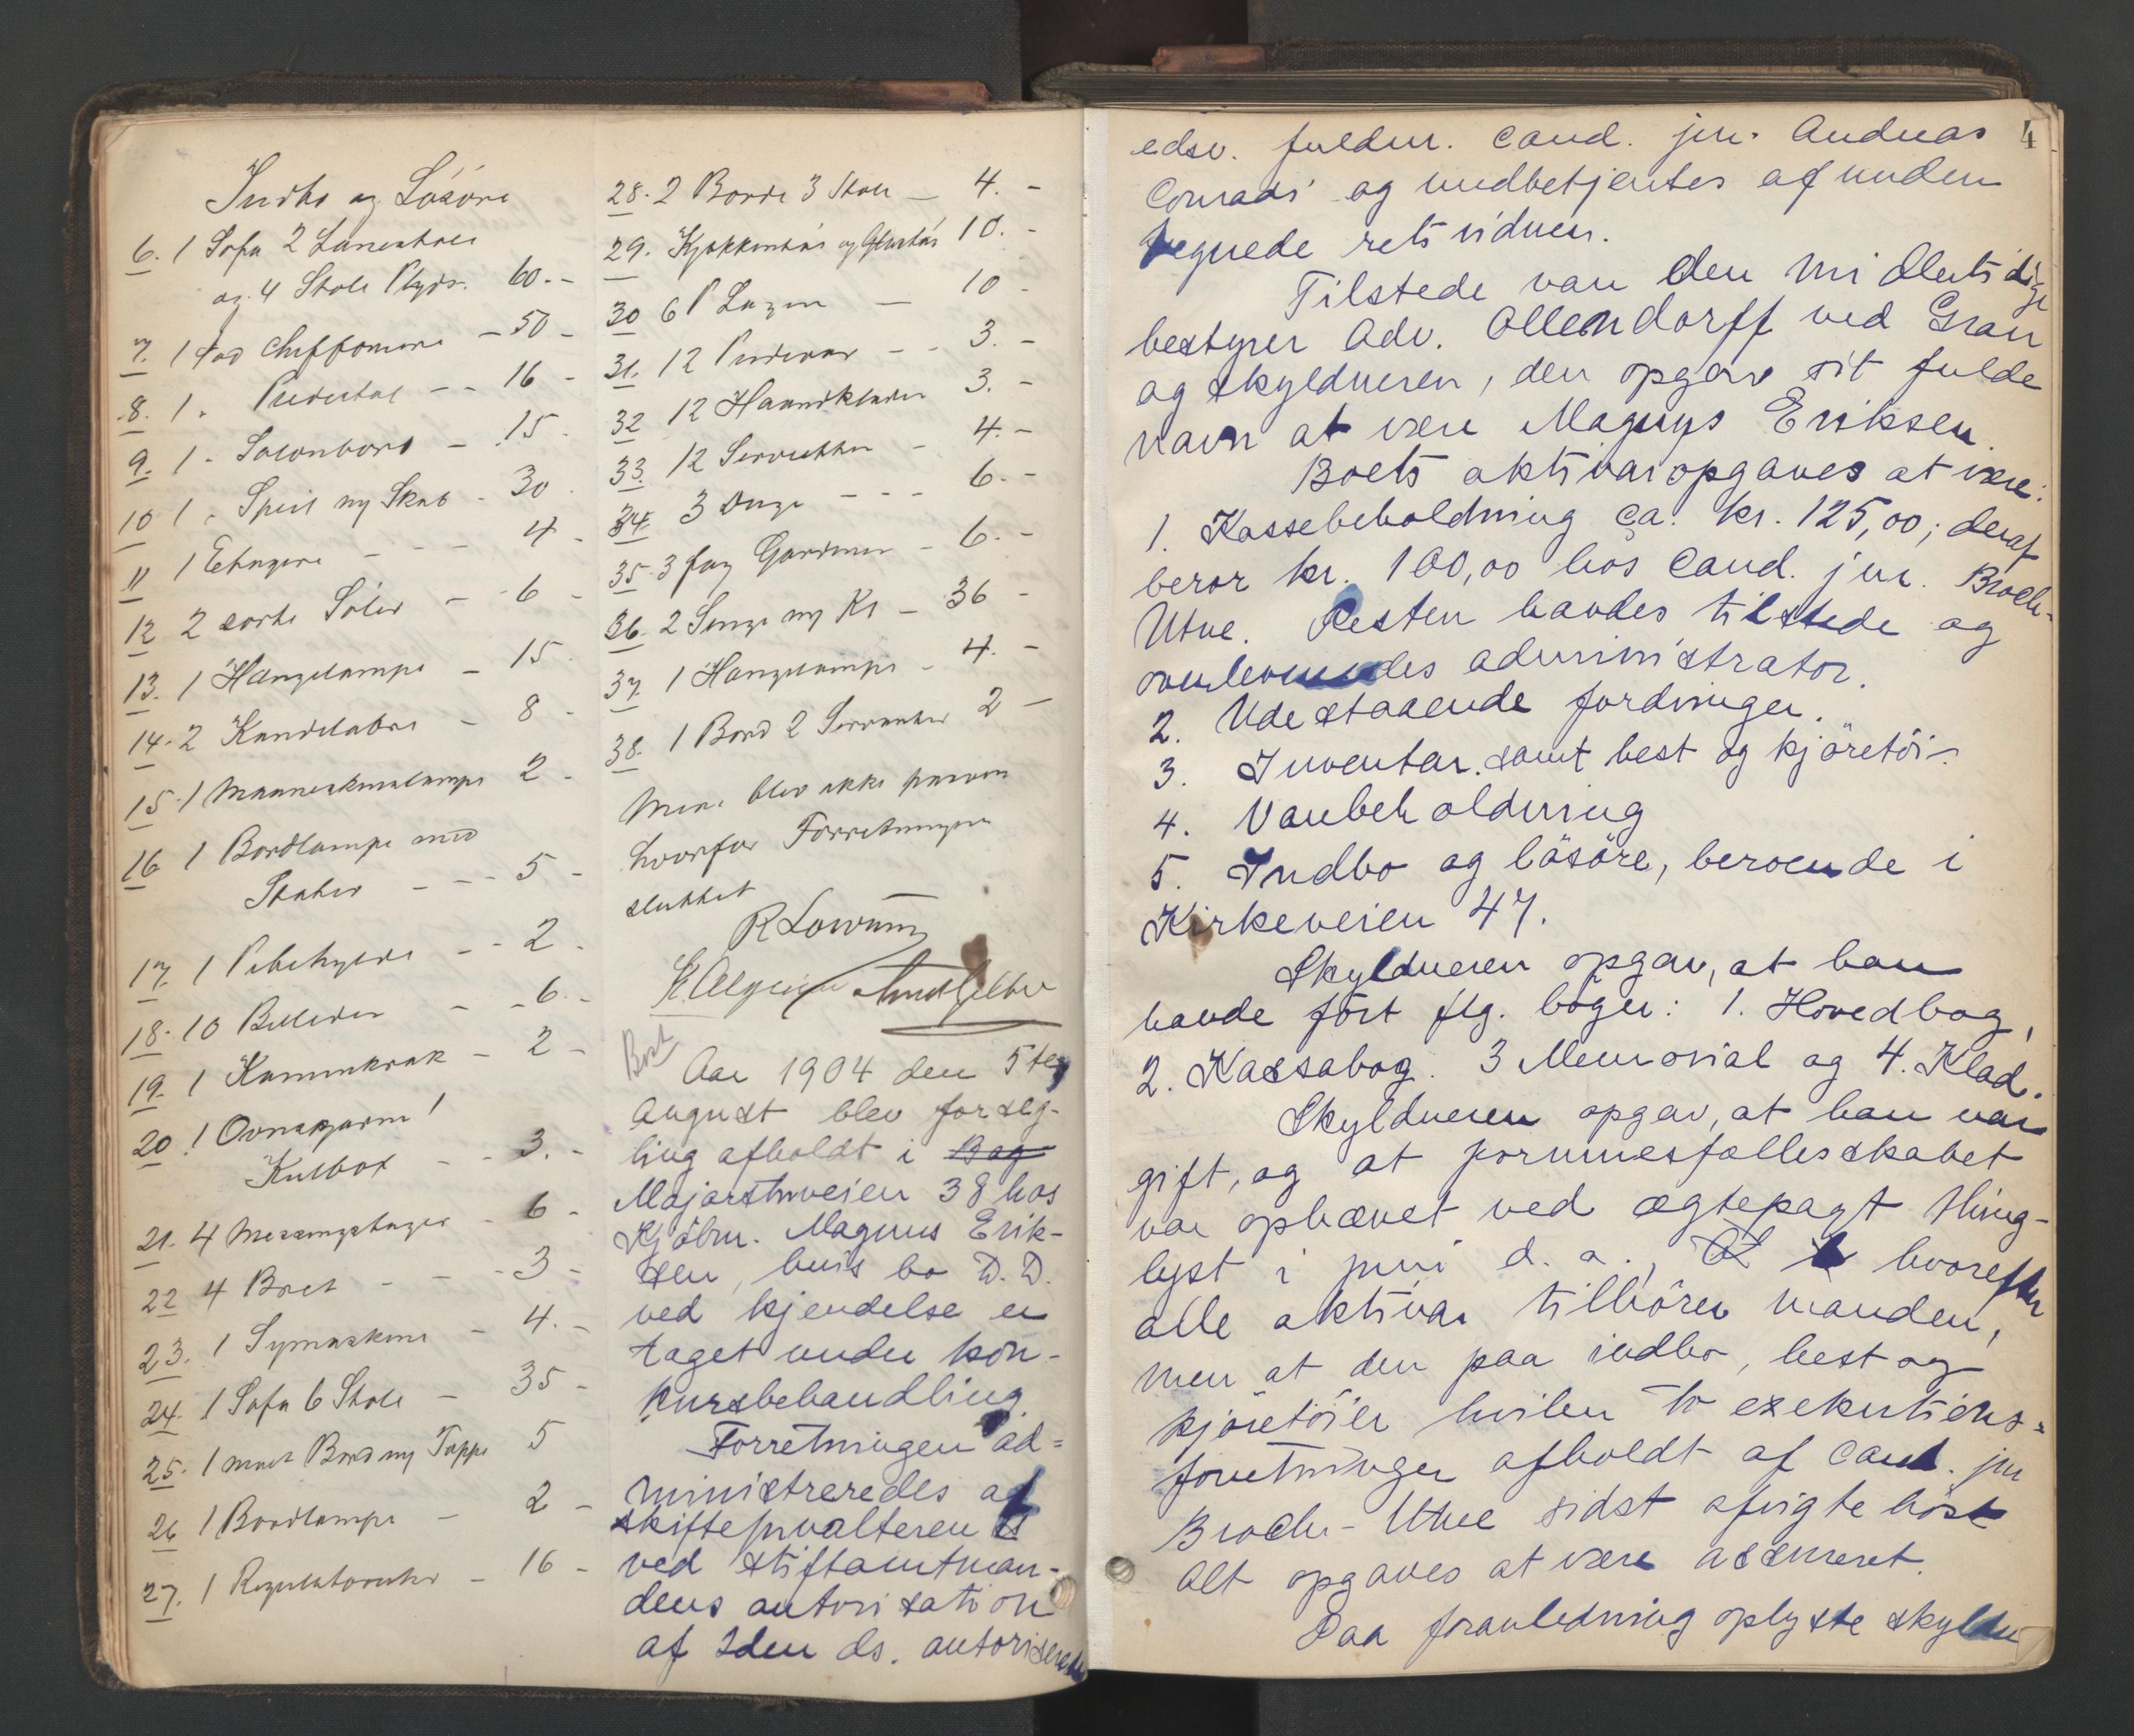 Indbo og Lösöre
6. 1 Sofa 2 Lænestoler
og 4 Stole Plyds. 60.-
7. 1 Nød Chiffoniere - 50 -
8. 1 " Piedestal -- 16 -
9. 1 " Salonbord - 15 -
10 1 " Speil og Skab - 30
11 1 Etagere - - - 4 -
12 2 sorte Söiler - 6 -
13. 1 Hængelampe - 15
14. 2 Kandelabre - 8 -
15. 1 Maaneskinslampe 2 -
16 1 Bordlampe med
Stativ - - - 5 -
17. 1 Pibehylde - - 2 -
18. 10 Billeder - - 6. -
19. 1 Kaminkrak - 2 -
20 1 Ovnsgarm 1
Kulbox - - 3. -
21. 4 Messingstager - 6 -
22 4 Bret - - - 3 -
23. 1 Symaskine - 4. -
24. 1 Sofa 6 Stole - 35 -
25. 1 Bord og Tæppe 5
26 1 Bordlampe - 2 -
27. 1 Regulatoruhr - 16 -
28. 2 Borde 3 Stole - 4. -
29. Kjøkkentöi og Glastöi 10. -
30 6 P Lagen - 10 -
31. 12 Pudevar - - 3. -
32 12 Haandklæder 3. -
33. 12 Servietter - 4. -
34. 3 Duge - - - 6. -
35. 3 fag Gardiner - 6. -
36. 2 Senge og Kl - 36 -
37. 1 Hængelampe - 4. -
38. 1 Bord 2 Servanter 2 -
Mere blev ikke paavist
hvorfor Forretningen
sluttet
Aar 1904 den 5te
august blev forseg-
ling afholdt i Bog
Majorstuveien 38 hos
Kjöbm. Magnus Erik-
sen, hvis bo D. D.
ved kjendelse er
taget under kon-
kursbehandling.
Forretningen ad=
ministreredes af
skifteforvalteren
ved stiftamtman-
dens autorisation
af 2den ds. autoriserede
4
edsv. fuldm. cand. jur. Andreas
Conradi og medbetjentes af under
tegnede retsvidner.
Tilstede var den midlertidige
bestyrer Adv. Ollendorff ved Gran
og skyldneren, der opgav sit fulde
navn at være Magnus Eriksen.
Boets aktiva opgaves at være:
1. Kassebeholdning ca. kr. 125,00; deraf
beror kr. 100,00 hos cand. jur. Broch-
Utne. Resten havdes tilstede og
overleveredes administrator.
2. Udestaaende fordringer.
3. Inventar. samt hest og kjöretöi.
4. Varebeholdning
5. Indbo og lösöre, beroende i
Kirkeveien 47.
Skyldneren opgav, at han
havde fört flg. böger: 1. Hovedbog,
2. Kassabog. 3 Memorial og 4. Klad.
Skyldneren opgav, at han var
gift, og at formuesfællesskabet
var ophævet ved ægtepagt thing-
lyst i juni d. a., hvorefter
alle aktiva tilhörer manden,
men at der paa indbo, hest og
kjöretöier hviler to exekutions=
forretninger afholdt af cand. jur
Broch-Utne sidst afvigte höst
Alt opgaves at være assureret.
Paa foranledning oplyste skyldn